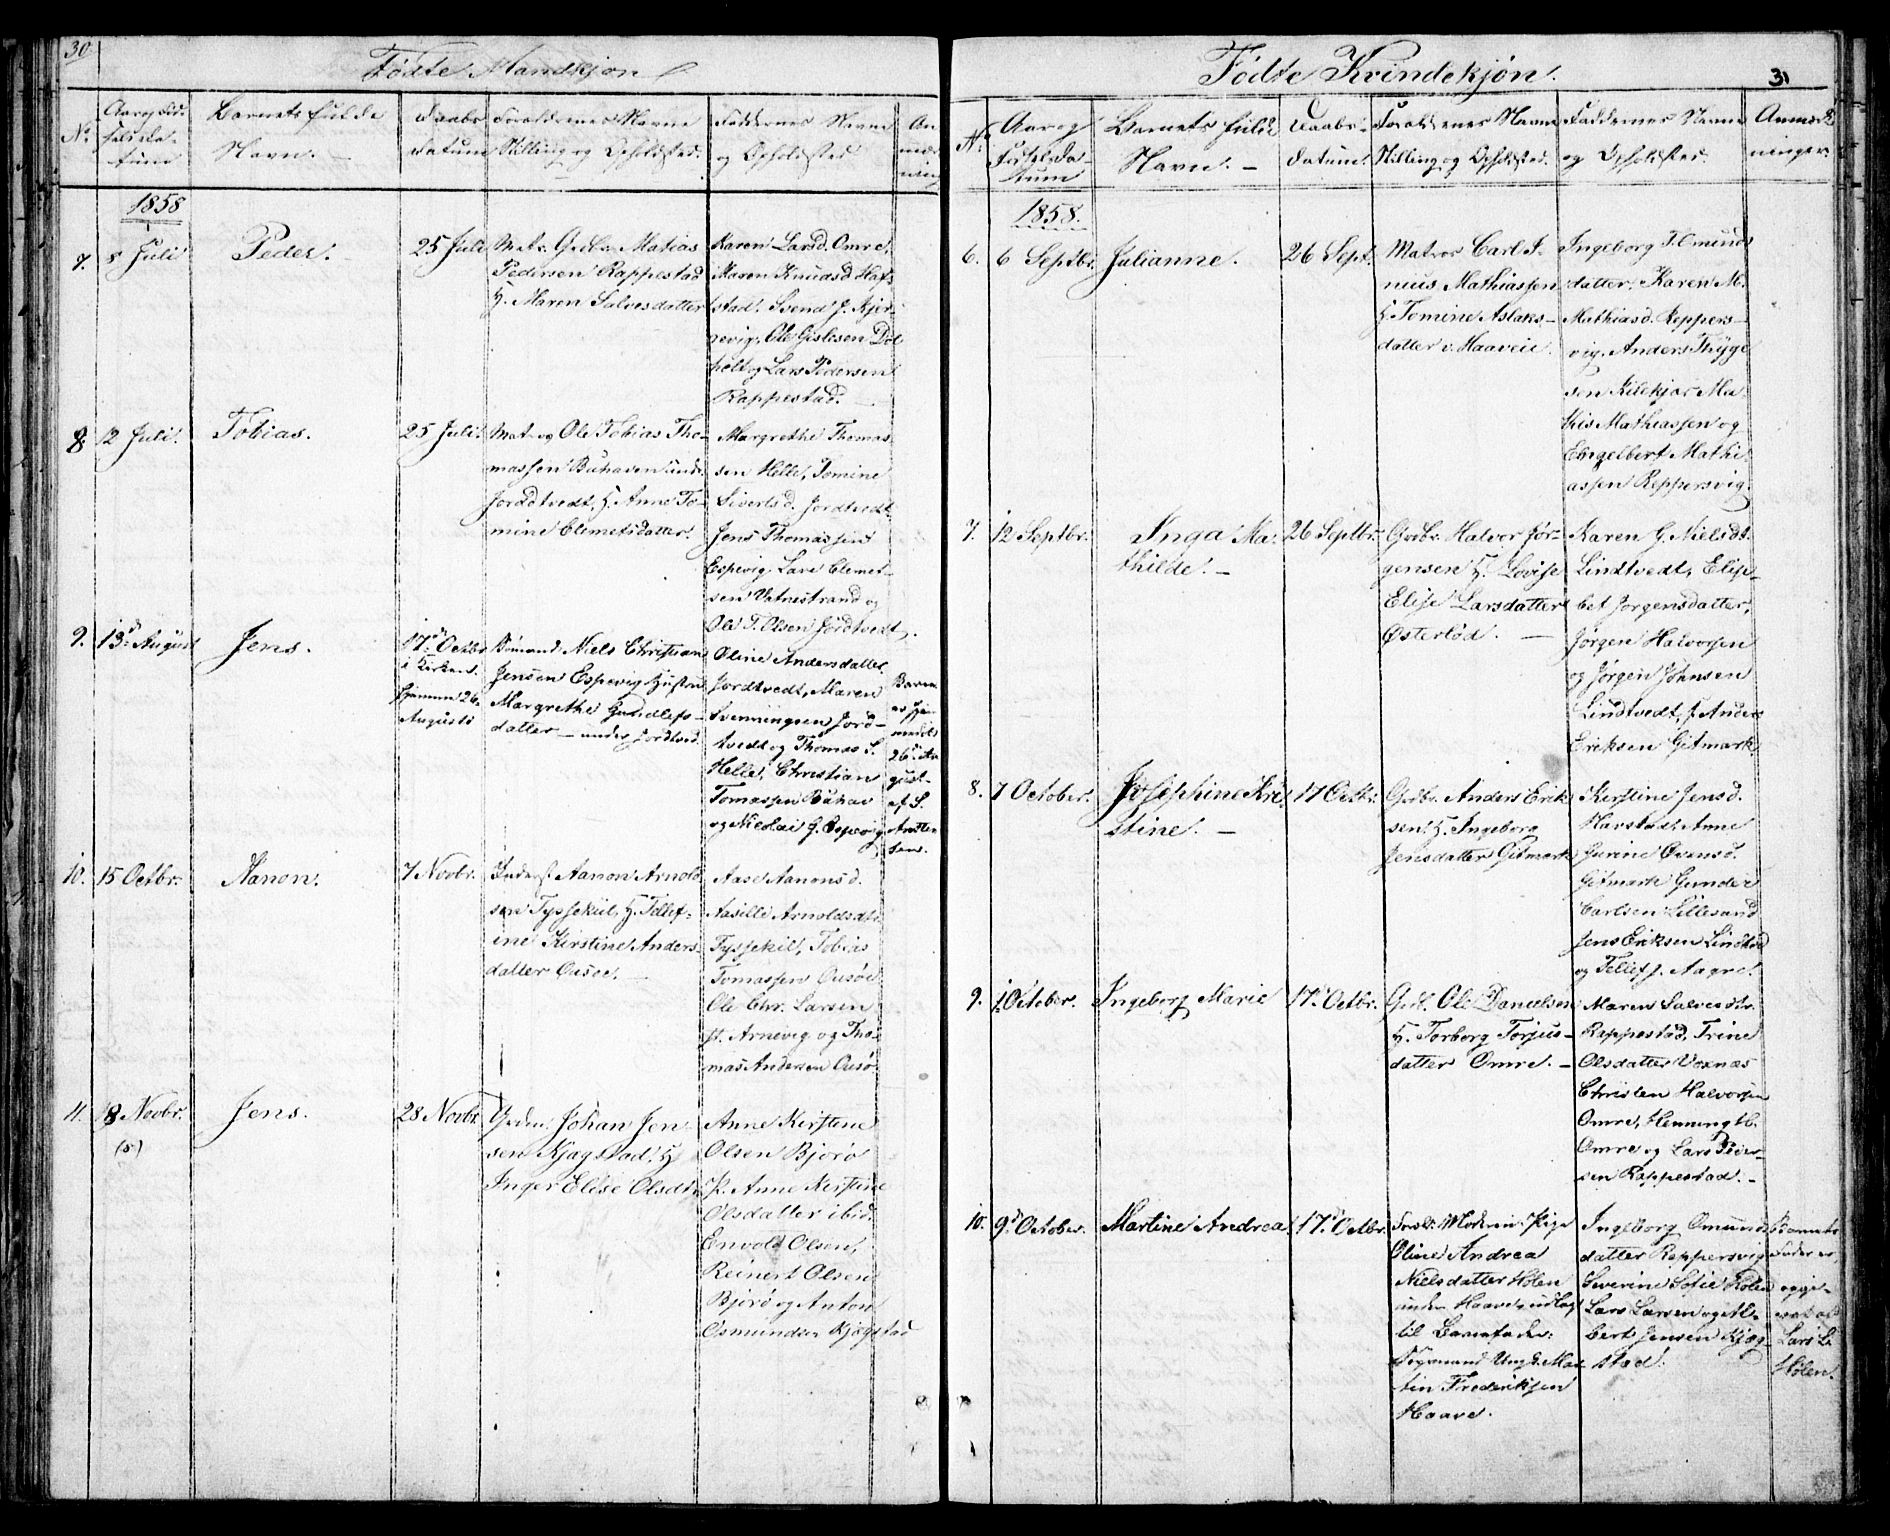 30
Fødte Mandkjøn
No.
Aar og Fødselsdatum
Barnets fulde Navn.
Daabsdatum
Forældrenes Navne Stilling og Opholdsted.
Faddernes Navne og Opholdsted
Anmærkning
1858
7.
8 Juli
Peder.
25 Juli
Matr. Gedbr. Matias
Pedersen Rappestad
H. Maren Salvesdatter
Karen Larsd. Omre,
Maren Knudsd Hal-
stad, Svend J. Kjør-
revig, Ole Gislesen Dol
holt og Lars Pedersen
Rappestad.
8.
12 Juli.
Tobias.
25 Juli.
Mat. og Ole Tobias Tho-
massen Buhaven und.
Jordtvedt, H. Anne To-
mine Clemetsdatter.
Margrethe Thomas
sen Helle, Tomine
Sivertsd. Jordtvedt
Jens Thomassen
Espevig. Lars Clemet-
sen Vatnestrand og
Ole T. Olsen Jordtvedt.
9.
13d August
Jens.
17d Octbr
i Kirken.
hjemme 26
August
Sømand Niels Christian
Jensen Espevig Hustru
Margrethe Gundlefs-
datter — under Jordtved.
Oline Andersdatter
Jordtvedt, Maren
Svenningsen Jord-
tvedt og Thomas S.
Helle, Christian
Tomassen Buhav
og Nicolai G. Espevig
Barnet
er hje-
medøbt
26d Au
gust
af S.
Arnten
sen.
10.
15 Octbr.
Aanon.
7 Novbr.
Inderst Aanon Arnold
sen Tyssekiil, H. Tellef-
ine Kirstine Anders
datter Ousøe. —
Aase Aanonsd.
Aasille Arnoldsdtr
Tyssekil, Tobias
Tomassen Ousöe
Ole Chr. Larsen
p. Arnevig og Tho-
mas Andersen Ousø
11.
18 Novbr.
(8)
Jens.
28 Novbr.
Gedm. Johan Jen
sen Kjøgstad, H
Inger Elise Olsdtr
Anne Kirstine
Olsen Bjorø
p. Anne Kirstine
Olsdatter ibid.
Envold Olsen,
Reinert Olsen
Bjorø og Anton
Osmundsen Kjøgstad
Fødte Kvindekjøn.
31
No.
Aar og Fødselsdatum
Barnets fulde Navn. —
Daabsdatum.
Forældrenes Navne Stilling og Opholdsted.
Faddernes Navne og Opholdsted.
Anmærkninger.
1858.
6.
6 Septbr.
Julianne.
26 Sept.
Matros Carl I-
nius Mathiassen
H. Tomine Aslaks-
datter v. Haaveie.
Ingeborg T. Omunds
datter, Karen M.
Mathiasd. Reppers-
vig. Anders Thyge
sen Kilekjær Ma
this Mathiassen og
Engelbert Mathi
assen Reppersvig.
7.
12 Septbr.
Inga Ma-
thilde. —
26 Septbr.
Gedbr. Halvor Jør-
gensen H. Lovise
Elise Larsdatter
Østerlod. —
Karen G. Nielsdt
Lindtvedt, Elisa-
bet Jorgensdatter,
Jørgen Halvorsen
og Jørgen Johnsen
Lindtvedt, p. Anders
Eriksen Gitmark
8.
7 October.
Josephine Kri
stine. —
17 Octbr.
Gedbr. Anders Erik
sen H. Ingeborg
Jensdatter Gitmark
Kirstine Jensd.
Havstad, Anne
Gurine Evensd.
Gitmark Gunder
Carlsen Lillesand
Jens Eriksen Lindtved
og Tellef J. Aagre.
9.
1 October.
Ingeborg Marie
17d Octbr.
Gedb. Ole Danielsen
H. Torborg Torjus-
datter Omre. —
Maren Salvesdtr.
Rappestad, Trine
Olsdatter Vasnæs
Christen Halvorsen
Omre, Henning H.
Omre og Lars Peder-
sen Rappestad. —
10.
9d October.
Martine Andrea.
17d Octbr.
Moderen: Pige
Oline Andrea
Nielsdatter Holen
under Haave, udlagt
til Barnefader:
Sömand Ungk. Mar
tin Frederiksen
Haave.
Ingeborg Omunds
datter Reppersvig
Severine Sofie Holen
Lars Larsen og Al-
bert Jensen Kjøg-
stad.
Barnets
Fader er
opgi-
vet af
Lars L.
Holen.